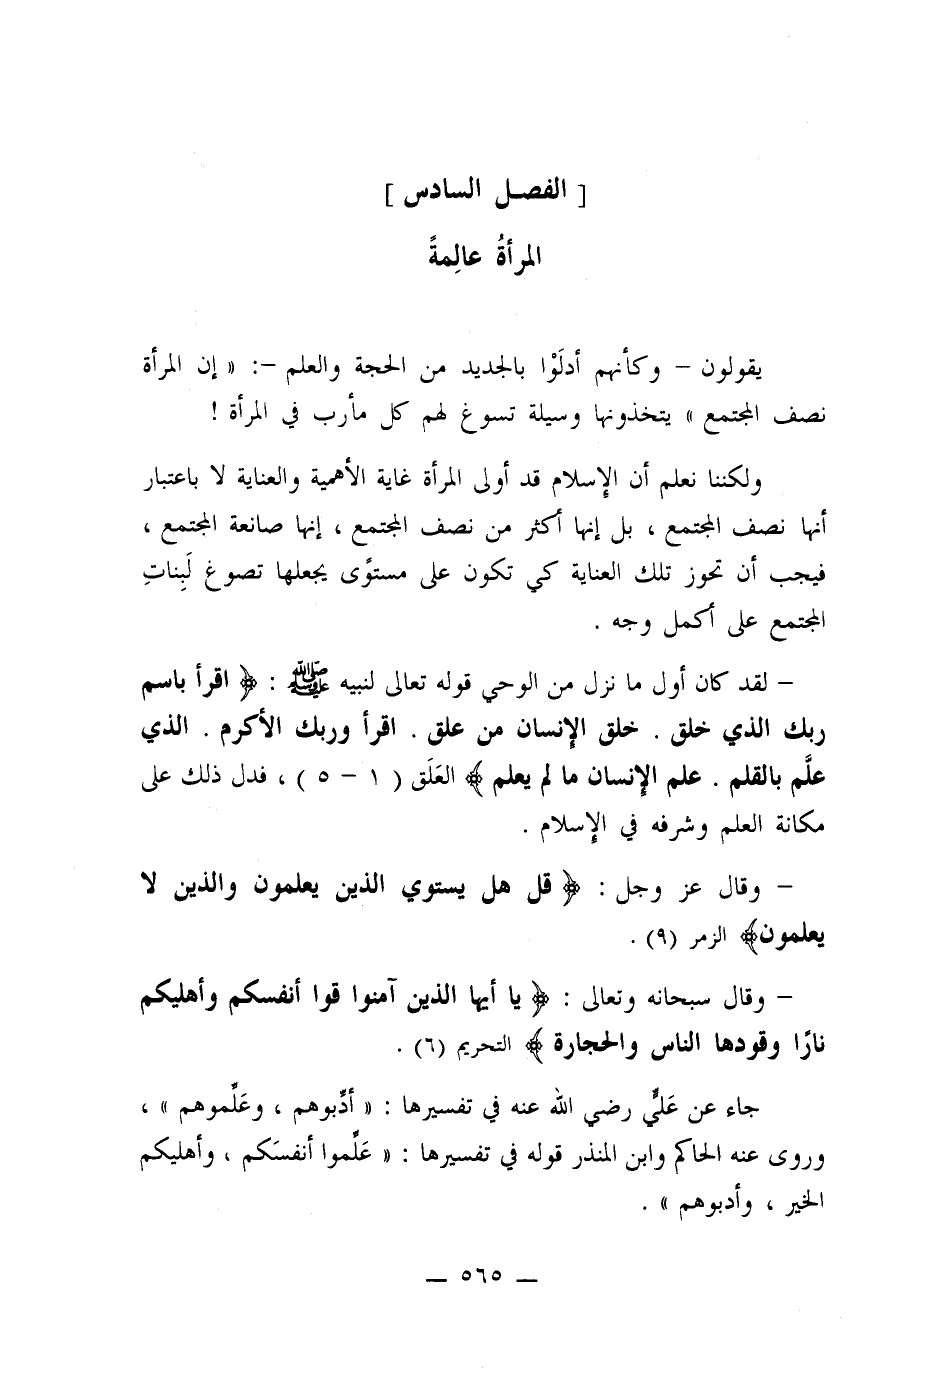 [ الفصل السادس ]
المرأةُ عالِمةً
يقولون – وكأنهم أدلَوْا بالجديد من الحجة والعلم –: « إن المرأة
نصف المجتمع » يتخذونها وسيلة تسوغ لهم كل مأرب في المرأة !
ولكننا نعلم أن الإسلام قد أولى المرأة غاية الأهمية والعناية لا باعتبار
أنها نصف المجتمع ، بل إنها أكثر من نصف المجتمع ، إنها صانعة المجتمع ،
فيجب أن تحوز تلك العناية كي تكون على مستوًى يجعلها تصوغ لَبِناتِ
المجتمع على أكمل وجه .
– لقد كان أول ما نزل من الوحي قوله تعالى لنبيه ﷺ : ﴿ اقرأ باسم
ربك الذي خلق . خلق الإنسان من علق . اقرأ وربك الأكرم . الذي
علَّم بالقلم . علم الإنسان ما لم يعلم ﴾ العَلَق ( ١ – ٥ ) ، فدل ذلك على
مكانة العلم وشرفه في الإسلام .
– وقال عز وجل : ﴿ قل هل يستوي الذين يعلمون والذين لا
يعلمون﴾ الزمر (٩) .
– وقال سبحانه وتعالى : ﴿ يا أيها الذين آمنوا قوا أنفسكم وأهليكم
نارًا وقودها الناس والحجارة ﴾ التحريم (٦) .
جاء عن عَليٍّ رضي الله عنه في تفسيرها : « أدِّبوهم ، وعَلِّموهم » ،
وروى عنه الحاكم وابن المنذر قوله في تفسيرها : « عَلِّموا أنفسَكم ، وأهليكم
الخير ، وأدبوهم » .
— ٥٦٥ —